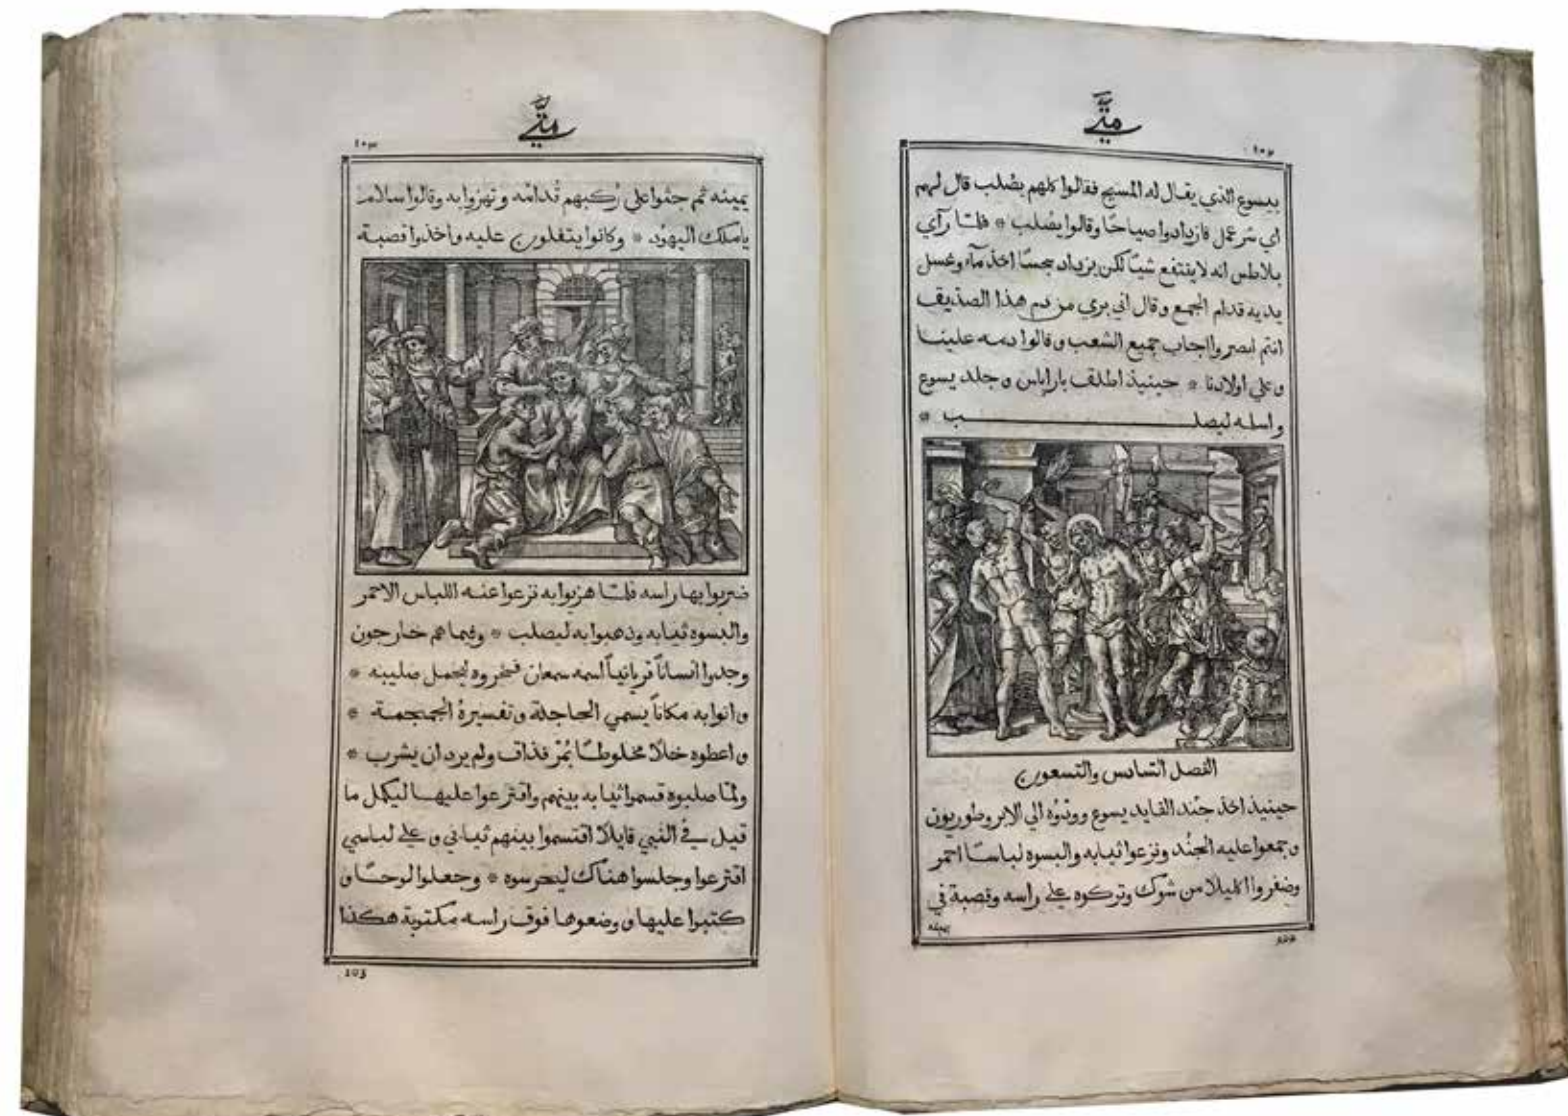 متّي
١٠٢
بيسوع الذي يقال له المسيح فقالوا كلهم يصلب قال لهم
اي شر عمل فازدادوا صياحًا وقالوا يصلب * فلمّا رآي
بلاطس انه لا ينتفع شيا لكن يزداد سجسًا اخذ مآء وغسل
يديه قدام الجمع وقال اني بري من دم هذا الصديق
انتم ابصروا اجاب جميع الشعب وقالوا دمه علينا
وعلي اولادنا * حينيذ اطلق باراباس وجلد يسوع
واسلمه ليصلب *
الفصل السّادس والتسعون
حينيذ اخذ جُند القايد يسوع وودّوه الي الابروطوريون
وجمعوا عليه الجُند ونزعوا ثيابه والبسوه لباسًا احمر
وضفروا اكليلا من شوك وتركوه علي راسه وقصبة في
يمينه
متّي
١٠٣
يمينه ثم جثوا علي رُكبهم قُدامه وتهزوا به وقالوا سلام
يا ملك اليهود * وكانوا يتفلون عليه واخذوا قصبة
ضربوا بها راسه فلمّا هزوا به نزعوا عنه اللباس الاحمر
والبسوه ثيابه وذهبوا به ليصلب * وفيما هم خارجون
وجدوا انسانًا قريانيًا اسمه سمعان فسخروه ليحمل صليبه *
واتوا به مكانًا يسمي الجاجلة وتفسيرهُ الجمجمة *
واعطوه خلّا مخلوطًا بمُرّ فذاق ولم يرد ان يشرب *
ولمّا صلبوه قسموا ثيابه بينهم واقترعوا عليها ليكمل ما
قيل في النبي قايلًا اقتسموا بينهم ثيابي وعلي لباسي
اقترعوا وجلسوا هناك ليحرسوه * وجعلوا لوحًا و
كتبوا عليها ووضعوها فوق راسه مكتوبة هكذا
103